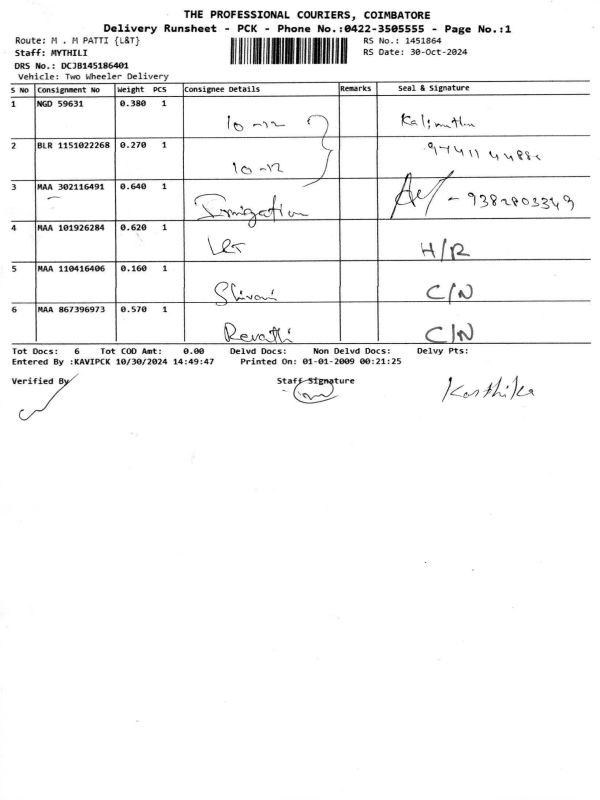 THE PROFESSIONAL COURIERS, COIMBATORE
Delivery Runsheet - PCK - Phone No.:0422-3505555 - Page No.:1
Route: M . M PATTI {L&T} RS No.: 1451864
Staff: MYTHILI RS Date: 30-Oct-2024
DRS No.: DCJB145186401
Vehicle: Two Wheeler Delivery
S No Consignment No Weight PCS Consignee Details Remarks Seal & Signature
1 NGD 59631 0.380 1 10-12
2 BLR 1151022268 0.270 1 10-12
3 MAA 302116491 0.640 1 Irrigation - 9382803349
4 MAA 101926284 0.620 1 H/R
5 MAA 110416406 0.160 1 Shivani C/N
6 MAA 867396973 0.570 1 Revathi C/N
Tot Docs: 6 Tot COD Amt: 0.00 Delvd Docs: Non Delvd Docs: Delvy Pts:
Entered By :KAVIPCK 10/30/2024 14:49:47 Printed On: 01-01-2009 00:21:25
Verified By Staff Signature Karthika